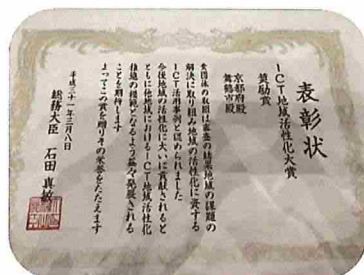 表彰状
ICT地域活性化大賞
奨励賞
京都府殿
舞鶴市殿
貴団体の取組は審査の結果地域の課題の
解決に取り組み地域の活性化に資する
ICT活用事例と認められました
今後地域の活性化に大いに貢献されると
ともに他地域におけるICT地域活性化
推進の模範となるよう益々発展される
ことを期待します
よってこの賞を贈りその栄誉をたたえます
平成三十一年三月八日
総務大臣 石田真敏